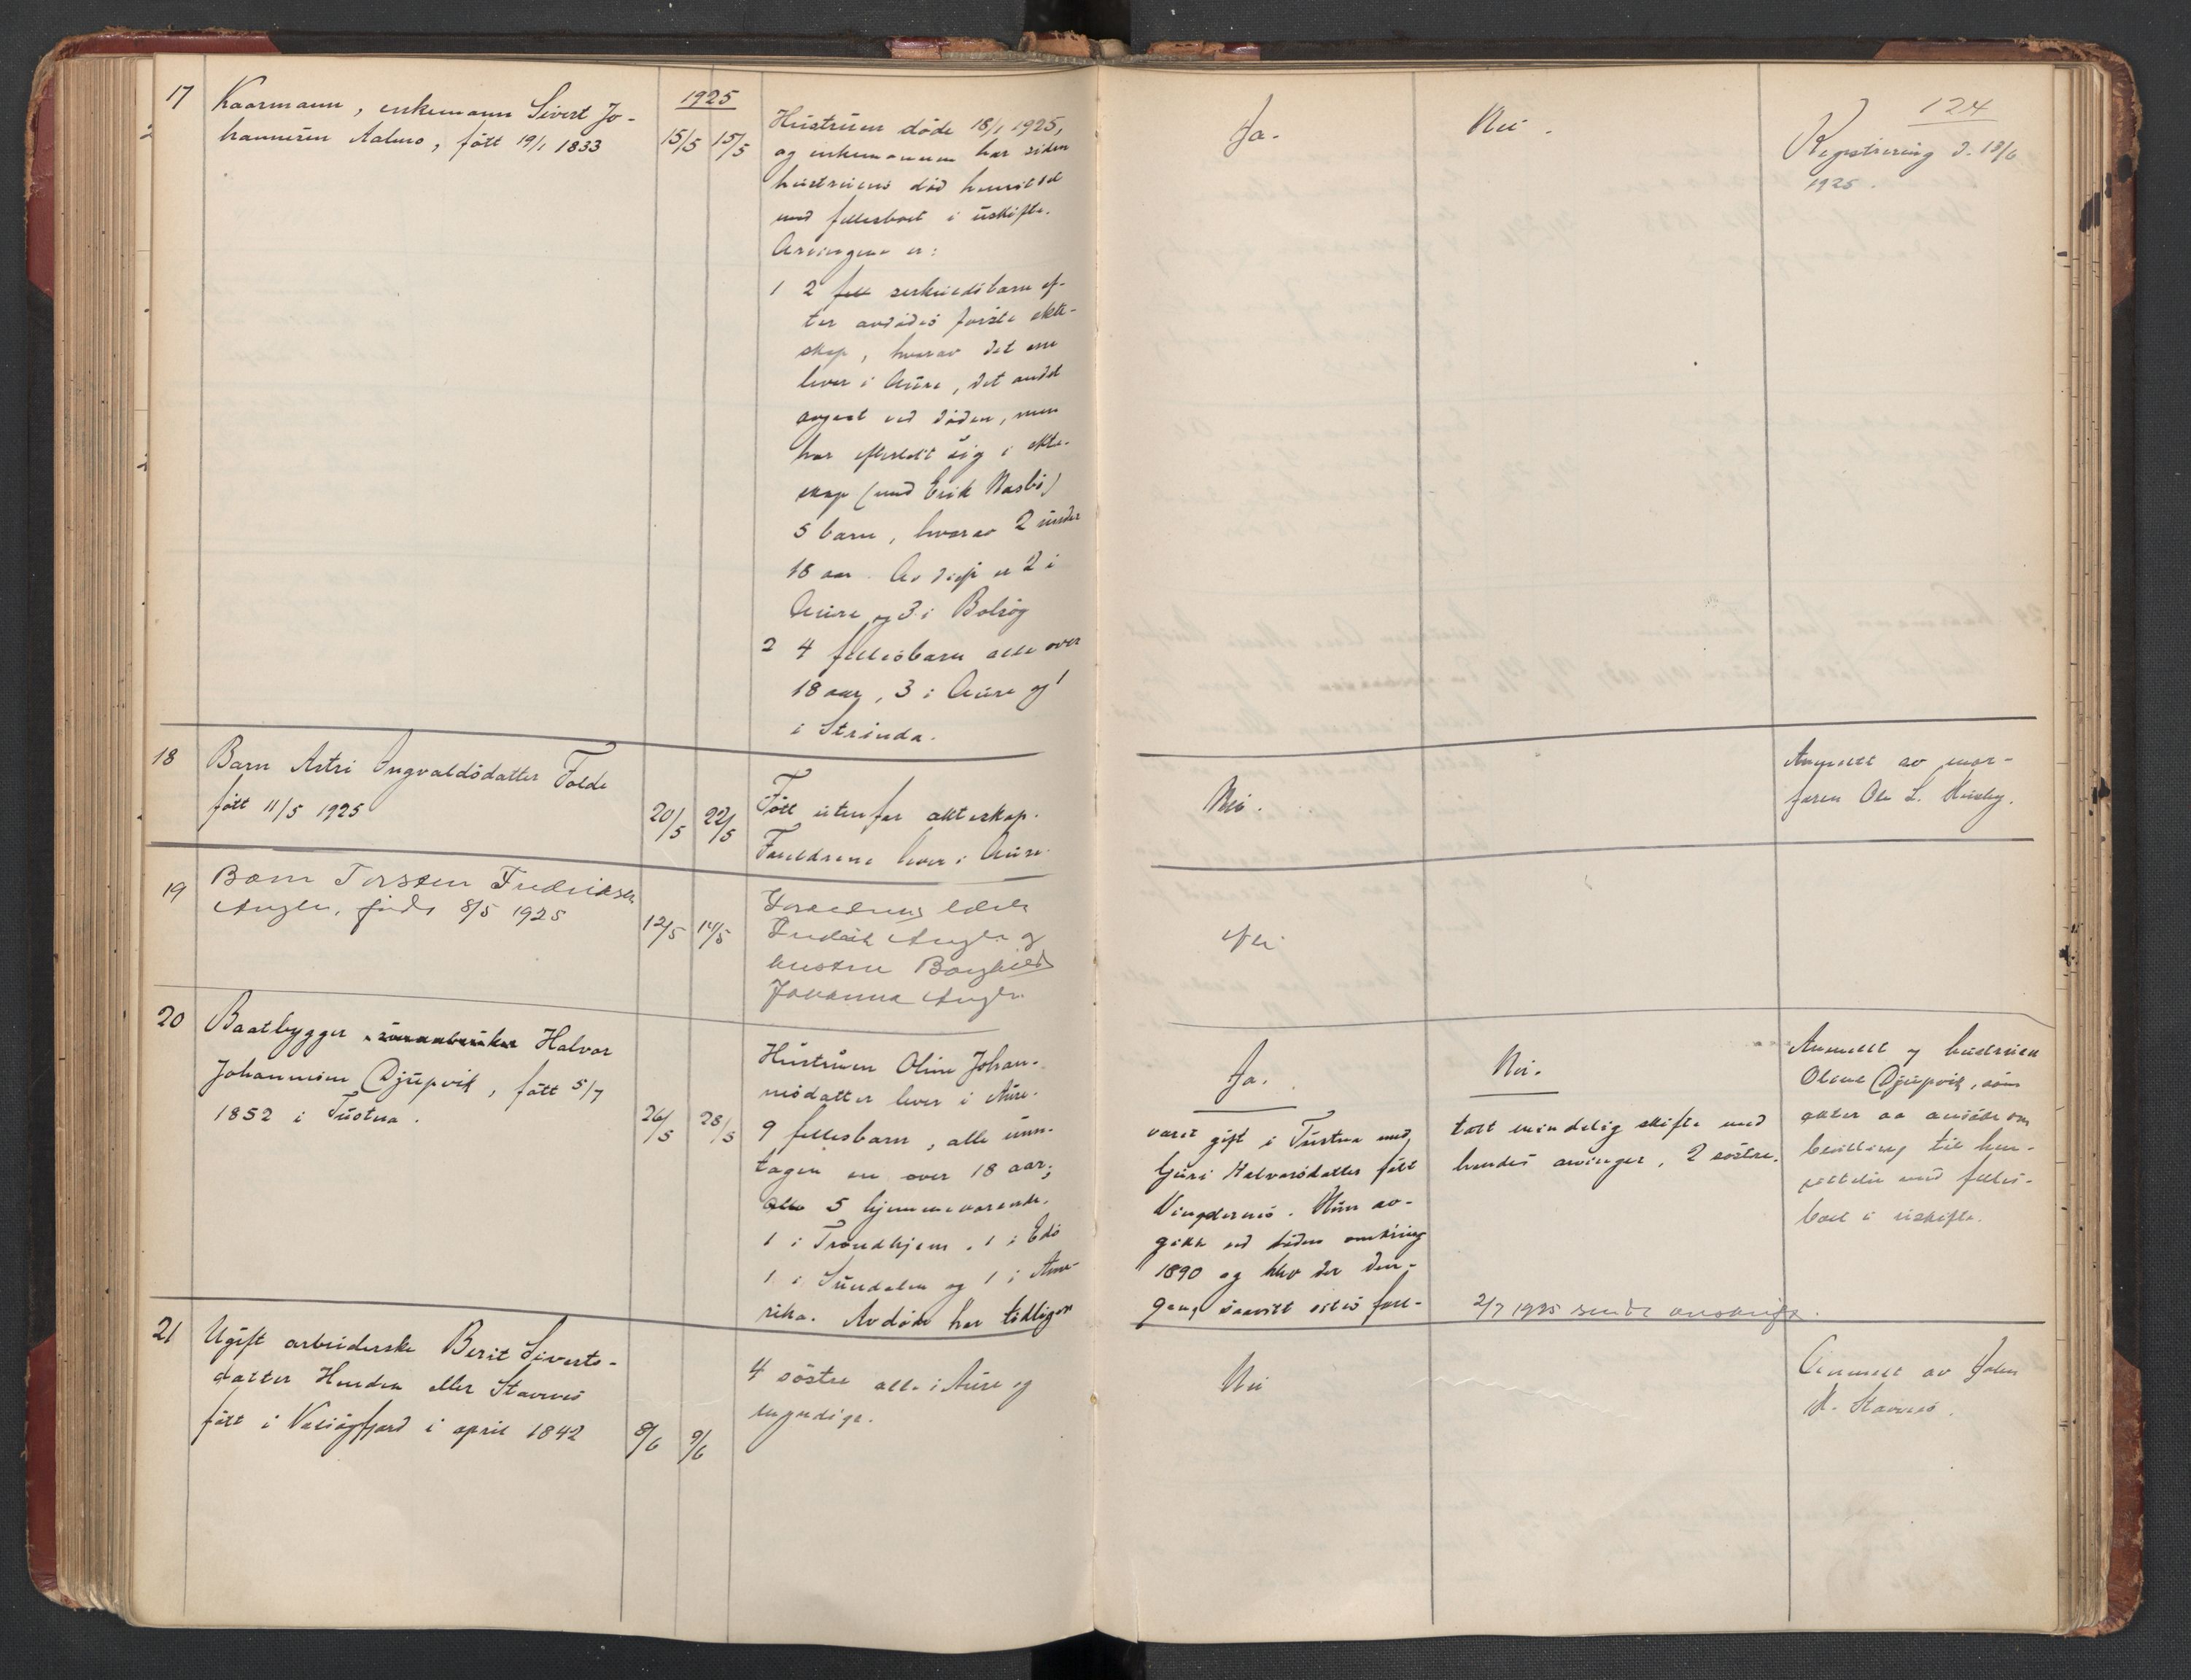 124
1925
17 Kaarmann, enkemann Sivert Jo-
hannesen Aalmo, fött 19/1 1833
15/5 15/5
Hustruen döde 18/1 1925,
og enkemannen har siden
hustruens död hensittet
med fellesboet i uskifte.
Arvingene er:
1 2 serkullsbarn ef-
ter avdödes förste ekte-
skap, hvorav det ene
lever i Aure, det andet
avgaat ved döden, men
har efterlatt sig i ekte-
skap (med Erik Nasbö)
5 barn, hvorav 2 under
18 aar. Av disse er 2 i
Aure og 3 i Bolsöy
2 4 fellesbarn alle over
18 aar, 3 i Aure og 1
i Strinda.
Ja.
Nei.
Registrering d. 18/6
1925.
18 Barn Astri Ingvaldsdatter Folde
fött 11/5 1925
20/5 22/5
Fött utenfor ekteskap.
Foreldrene lever i Aure.
Nei.
Anmeldt av mor-
faren Ole L. Husby.
19 Barn Torsten Fredriksen
födt 8/5 1925
12/5 14/5
Foreldrene lever
Fredrik og
hustru Borghild
Johanna
Nei
20 Baatbygger Halvor
Johannesen Djupvik, fött 5/7
1852 i Tustna.
26/5 28/5
Hustruen Oline Johan-
nesdatter lever i Aure.
9 fellesbarn, alle unn-
tagen en over 18 aar;
5 hjemmeværende.
1 i Trondhjem, 1 i Edö
1 i Sundalen og 1 i Ame-
rika. Avdöde har tidligere
Ja.
været gift i Tustna med
Guri Halvorsdatter fött
Vingsternes. Hun av-
gikk ved döden omkring
1890 og blev der den-
gang saavitt vites fore-
Nei.
tatt mindelig skifte med
hendes arvinger, 2 söstre.
2/7 1925 sendt avskrift.
Anmeldt av hustruen
Oline Djupvik, som
akter aa ansöke om
bevilling til hen-
sittelse med felles-
boet i uskifte.
21 Ugift arbeiderske Berit Siverts-
datter Hendea eller Stavnes
fött i Valsöyfjord i april 1842
8/6 9/6
4 söstre alle i Aure og
myndige.
Nei
Anmeldt av John
Stavnes.